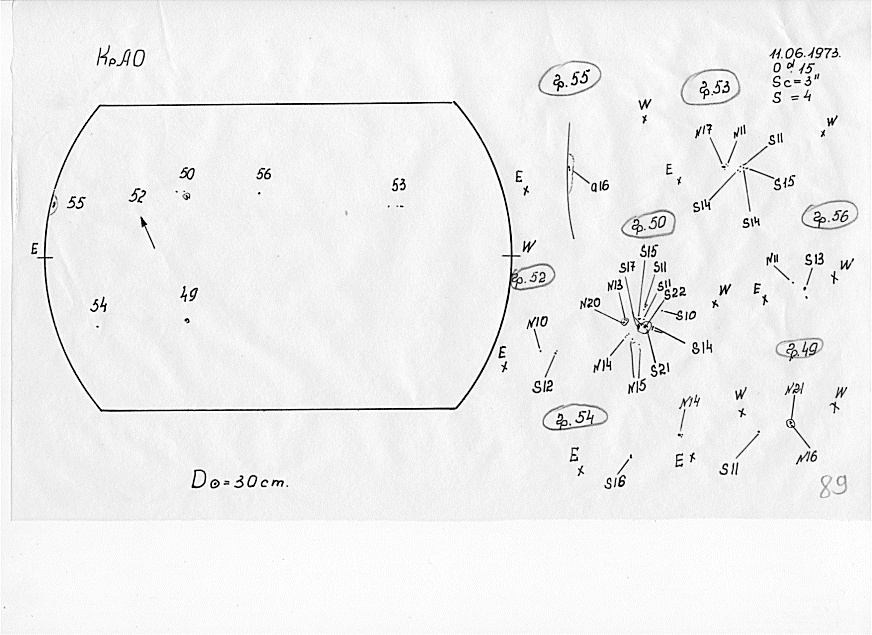 КрАО
11.06.1973.
0ᵈ.15
Sc=3"
S=4
50
56
53
52
55
E
W
54
49
D⊙=30cm.
гр.55
E
a16
гр.53
W
W
E
N17
N11
S11
S15
S14
S14
гр.50
S15
S17
S11
N13
S11
S22
N20
S10
W
S14
N14
S21
N15
гр.56
N11
S13
W
E
гр.52
N10
E
S12
гр.49
N21
W
W
N14
E
S11
N16
гр.54
E
S16
89